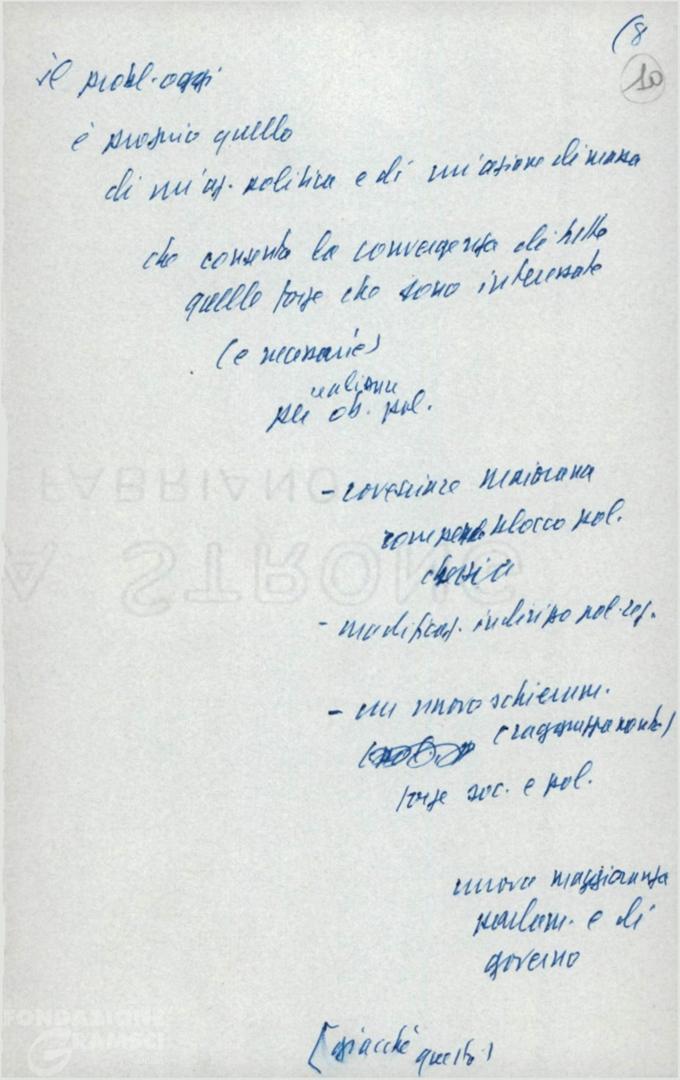 (8
10
il probl. oggi
è proprio quello
di un'az. politica e di un'azione di massa
che consenta la convergenza di tutte
quelle forze che sono interessate
(e necessarie)
realizzare
per ob. pol.
- rovesciare maioranza
rompere blocco pol.
- modificaz. indirizzo pol. reg.
- un nuovo schieram.
(raggruppamento)
forze soc. e pol.
nuova maggioranza
parlam. e di
governo
[giacché questo)
FABRIANO
STRONG
FONDAZIONE
GRAMSCI